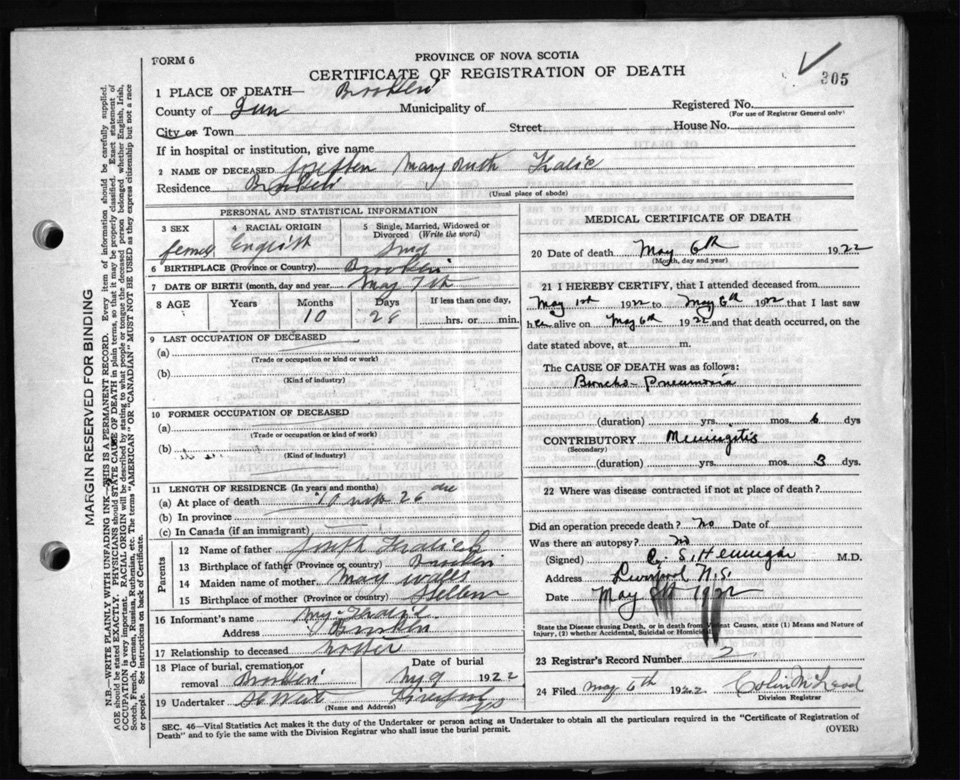 FORM 6
PROVINCE OF NOVA SCOTIA
CERTIFICATE OF REGISTRATION OF DEATH
305
1 PLACE OF DEATH—
County of Municipality of Registered No.
(For use of Registrar General only)
City or Town Street House No.
If in hospital or institution, give name
2 NAME OF DECEASED Mary Ruth
Residence
(Usual place of abode)
PERSONAL AND STATISTICAL INFORMATION
3 SEX 4 RACIAL ORIGIN 5 Single, Married, Widowed or Divorced (Write the word)
female English
6 BIRTHPLACE (Province or Country)
7 DATE OF BIRTH (month, day and year) May 7th
8 AGE Years Months Days If less than one day,
10 28 hrs. or min.
9 LAST OCCUPATION OF DECEASED
(a)
(Trade or occupation or kind or work)
(b)
(Kind of industry)
10 FORMER OCCUPATION OF DECEASED
(a)
(Trade or occupation or kind of work)
(b)
(Kind of industry)
11 LENGTH OF RESIDENCE (In years and months)
(a) At place of death 10
(b) In province
(c) In Canada (if an immigrant)
Parents
12 Name of father Joseph
13 Birthplace of father (Province or country)
14 Maiden name of mother May
15 Birthplace of mother (Province or country)
16 Informant's name
Address
17 Relationship to deceased
18 Place of burial, cremation or removal Date of burial
May 9 1922
19 Undertaker
(Name and Address)
MEDICAL CERTIFICATE OF DEATH
20 Date of death May 6th 1922
(Month, day and year)
21 I HEREBY CERTIFY, that I attended deceased from
May 1st 1922 to May 6th 1922 that I last saw
her alive on May 6th 1922 and that death occurred, on the
date stated above, at m.
The CAUSE OF DEATH was as follows:
Broncho-Pneumonia
(duration) yrs. mos. 6 dys
CONTRIBUTORY Meningitis
(Secondary)
(duration) yrs. mos. 3 dys.
22 Where was disease contracted if not at place of death?
Did an operation precede death? No Date of
Was there an autopsy? No
(Signed) M.D.
Address Liverpool N.S.
Date May 8th 1922
State the Disease causing Death, or in death from Violent Causes, state (1) Means and Nature of
Injury, (2) whether Accidental, Suicidal or Homicidal
23 Registrar's Record Number
24 Filed May 6th 1922
Division Registrar
SEC. 46—Vital Statistics Act makes it the duty of the Undertaker or person acting as Undertaker to obtain all the particulars required in the "Certificate of Registration of
Death" and to fyie the same with the Division Registrar who shall issue the burial permit. (OVER)
MARGIN RESERVED FOR BINDING
N.B.—WRITE PLAINLY WITH UNFADING INK—THIS IS A PERMANENT RECORD. Every item of information should be carefully supplied.
AGE should be stated EXACTLY. PHYSICIANS should STATE CAUSE OF DEATH in plain terms, so that it may be properly classified. Exact statement of
OCCUPATION is very important. RACIAL ORIGIN will be described by stating to what people or tongue the deceased person belonged whether English, Irish,
Scotch, French, German, Russian, Ruthenian, etc. The terms "AMERICAN" OR "CANADIAN" MUST NOT BE USED as they express citizenship but not a race
or people. See instructions on back of Certificate.